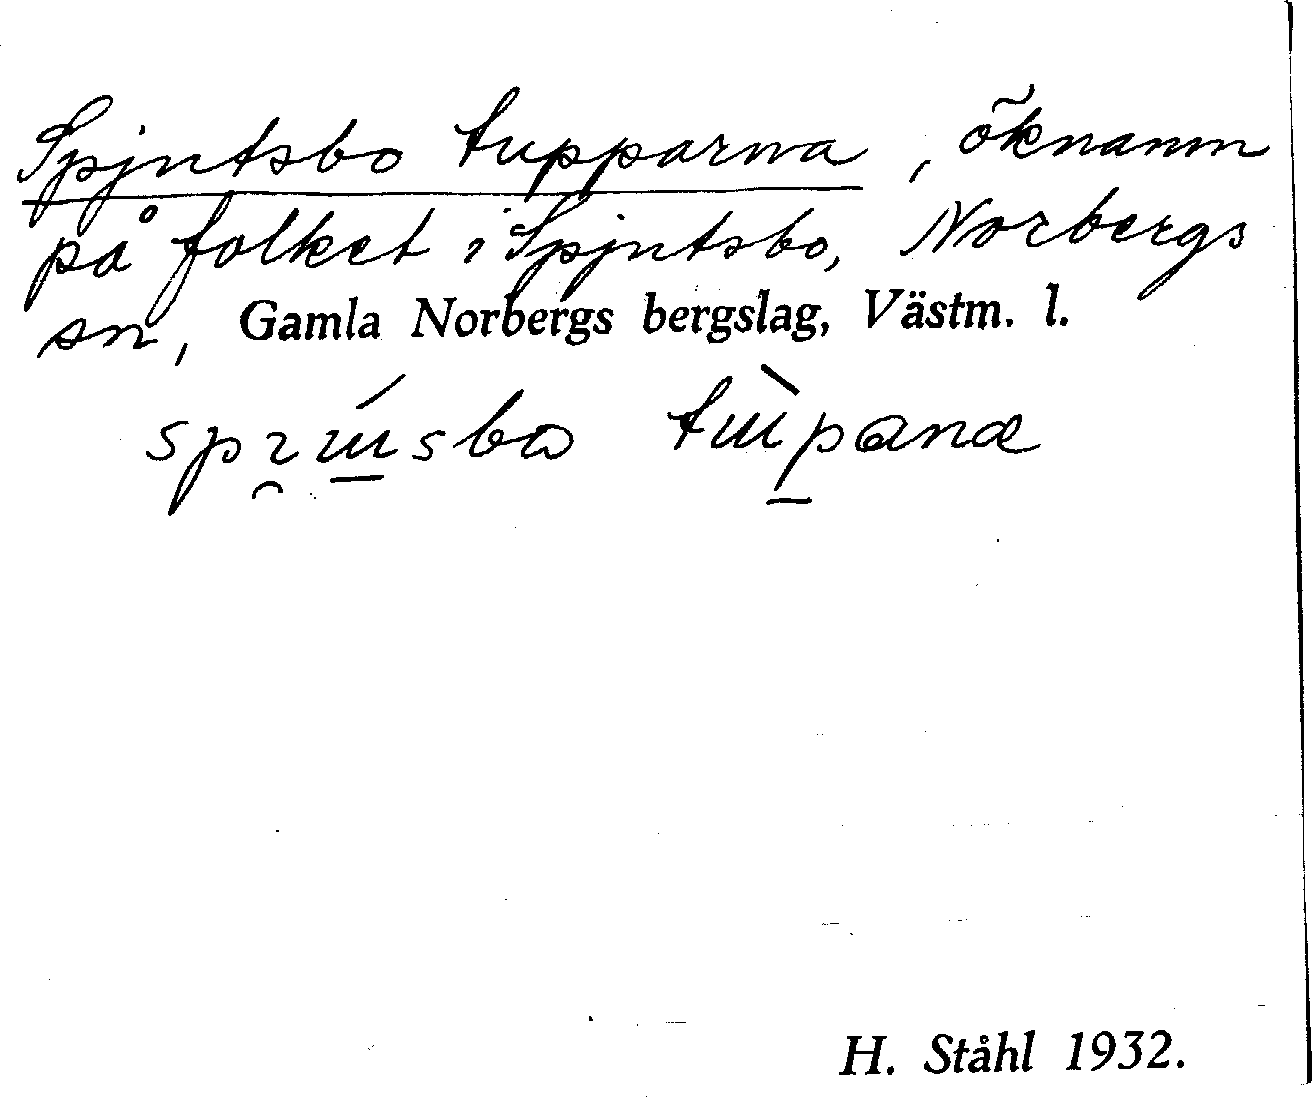 Spjutsbo tupparna, öknamn
på folket i Spjutsbo, Norbergs
sn, Gamla Norbergs bergslag, Västm. l.
H. Ståhl 1932.